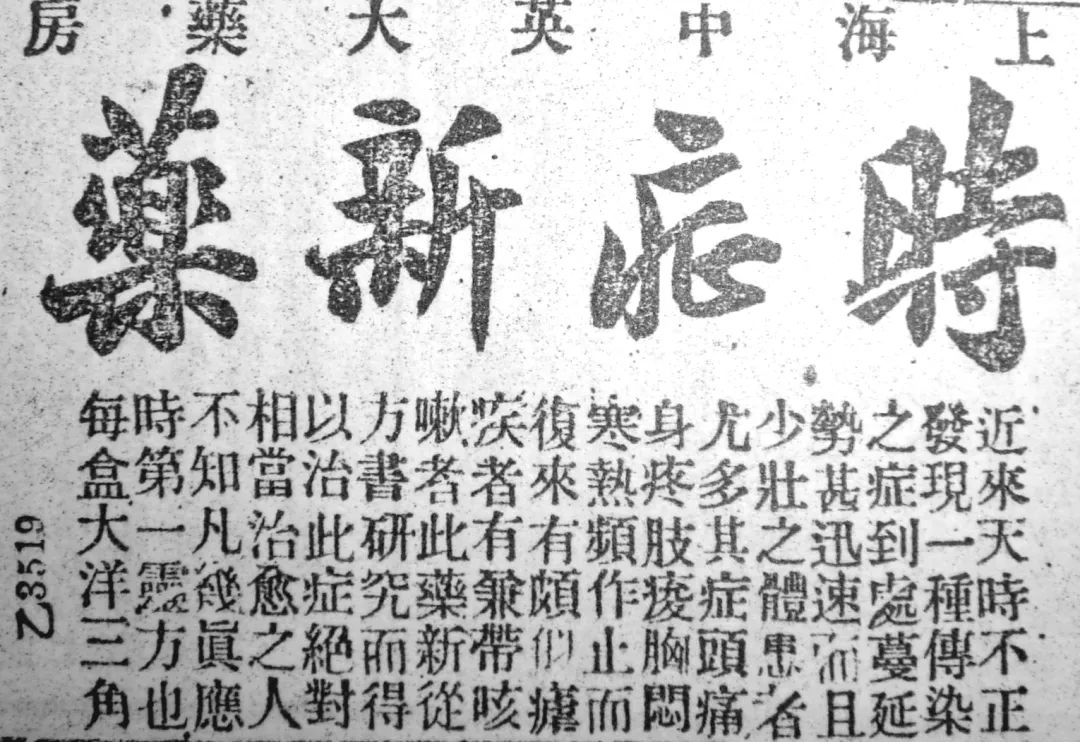 上海中英大藥房
時症新藥
近來天時不正
發現一種傳染
之症到處蔓延
勢甚迅速而且
少壯之體患者
尤多其症頭痛
身疼肢痠胸悶
寒熱頻作止而
復來有頗似瘧
疾者有兼帶咳
嗽者此藥新從
方書研究而得
以治此症絕對
相當治愈之人
不知凡幾眞應
時第一靈方也
每盒大洋三角
乙3519